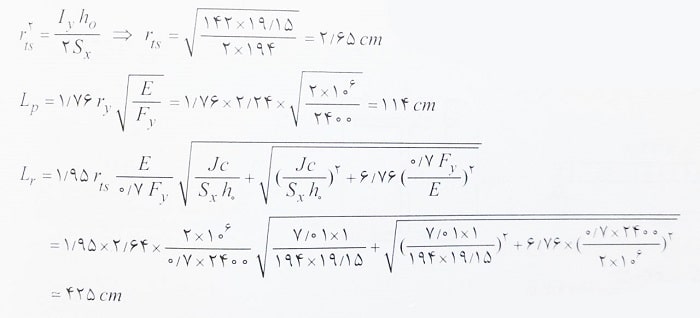 r_ts^۲ = I_y h_o / ۲S_x ⇒ r_ts = √(۱۴۲×۱۹/۱۵ / ۲×۱۹۴) = ۲/۶۵ cm
L_p = ۱/۷۶ r_y √(E / F_y) = ۱/۷۶×۲/۲۴× √(۲×۱۰^۶ / ۲۴۰۰) = ۱۱۴ cm
L_r = ۱/۹۵ r_ts E / ۰/۷ F_y √(Jc / S_x h_o + √((Jc / S_x h_o)^۲ + ۶/۷۶ (۰/۷ F_y / E)^۲))
= ۱/۹۵×۲/۶۴× ۲×۱۰^۶ / ۰/۷×۲۴۰۰ √(۷/۰۱×۱ / ۱۹۴×۱۹/۱۵ + √((۷/۰۱×۱ / ۱۹۴×۱۹/۱۵)^۲ + ۶/۷۶×(۰/۷×۲۴۰۰ / ۲×۱۰^۶)^۲))
= ۴۲۵ cm